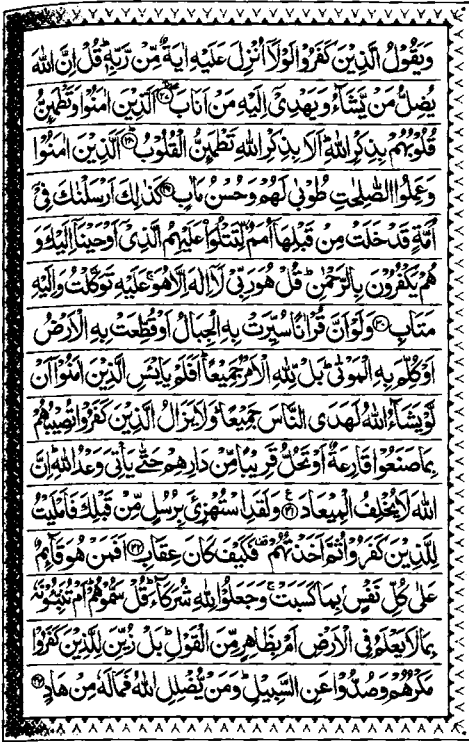 وَيَقُوْلُ الَّذِيْنَ كَفَرُوْا لَوْلَاۤ اُنْزِلَ عَلَيْهِ اٰيَةٌ مِّنْ رَّبِّهٖ ؕ قُلْ اِنَّ اللّٰهَ
يُضِلُّ مَنْ يَّشَآءُ وَيَهْدِيْۤ اِلَيْهِ مَنْ اَنَابَ ۝۲۷ اَلَّذِيْنَ اٰمَنُوْا وَتَطْمَىِٕنُّ
قُلُوْبُهُمْ بِذِكْرِ اللّٰهِ ؕ اَلَا بِذِكْرِ اللّٰهِ تَطْمَىِٕنُّ الْقُلُوْبُ ۝۲۸ اَلَّذِيْنَ اٰمَنُوْا
وَعَمِلُوا الصّٰلِحٰتِ طُوْبٰى لَهُمْ وَحُسْنُ مَاٰبٍ ۝۲۹ كَذٰلِكَ اَرْسَلْنٰكَ فِيْۤ
اُمَّةٍ قَدْ خَلَتْ مِنْ قَبْلِهَاۤ اُمَمٌ لِّتَتْلُوَا۟ عَلَيْهِمُ الَّذِيْۤ اَوْحَيْنَاۤ اِلَيْكَ وَ
هُمْ يَكْفُرُوْنَ بِالرَّحْمٰنِ ؕ قُلْ هُوَ رَبِّيْ لَاۤ اِلٰهَ اِلَّا هُوَ ۚ عَلَيْهِ تَوَكَّلْتُ وَاِلَيْهِ
مَتَابِ ۝۳۰ وَلَوْ اَنَّ قُرْاٰنًا سُيِّرَتْ بِهِ الْجِبَالُ اَوْ قُطِّعَتْ بِهِ الْاَرْضُ
اَوْ كُلِّمَ بِهِ الْمَوْتٰى ؕ بَلْ لِّلّٰهِ الْاَمْرُ جَمِيْعًا ؕ اَفَلَمْ يَايْـَٔسِ الَّذِيْنَ اٰمَنُوْۤا اَنْ
لَّوْ يَشَآءُ اللّٰهُ لَهَدَى النَّاسَ جَمِيْعًا ؕ وَلَا يَزَالُ الَّذِيْنَ كَفَرُوْا تُصِيْبُهُمْ
بِمَا صَنَعُوْا قَارِعَةٌ اَوْ تَحُلُّ قَرِيْبًا مِّنْ دَارِهِمْ حَتّٰى يَاْتِيَ وَعْدُ اللّٰهِ ؕ اِنَّ
اللّٰهَ لَا يُخْلِفُ الْمِيْعَادَ ۝۳۱ وَلَقَدِ اسْتُهْزِئَ بِرُسُلٍ مِّنْ قَبْلِكَ فَاَمْلَيْتُ
لِلَّذِيْنَ كَفَرُوْا ثُمَّ اَخَذْتُهُمْ ۫ فَكَيْفَ كَانَ عِقَابِ ۝۳۲ اَفَمَنْ هُوَ قَآىِٕمٌ
عَلٰى كُلِّ نَفْسٍۭ بِمَا كَسَبَتْ ۚ وَجَعَلُوْا لِلّٰهِ شُرَكَآءَ ؕ قُلْ سَمُّوْهُمْ ؕ اَمْ تُنَبِّـُٔوْنَهٗ
بِمَا لَا يَعْلَمُ فِي الْاَرْضِ اَمْ بِظَاهِرٍ مِّنَ الْقَوْلِ ؕ بَلْ زُيِّنَ لِلَّذِيْنَ كَفَرُوْا
مَكْرُهُمْ وَصُدُّوْا عَنِ السَّبِيْلِ ؕ وَمَنْ يُّضْلِلِ اللّٰهُ فَمَا لَهٗ مِنْ هَادٍ ۝۳۳